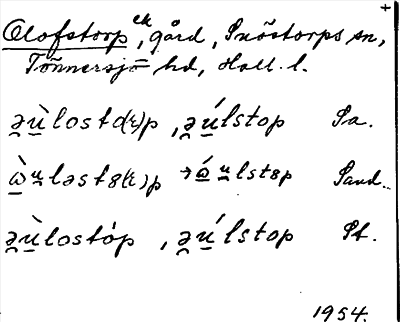 +
Olofstorp ek, gård, Snöstorps sn,
Tönnersjö hd, Hall. l.
ə̯ṳ̀lostɔ(r)p, ə̯ṳ́lstop Sa.
ɷ̀u̯ləst8(r)p → ɷ́u̯lst8p Sand.
ə̯ṳ̀lostȯp, ə̯ṳ́lstop St.
1954.